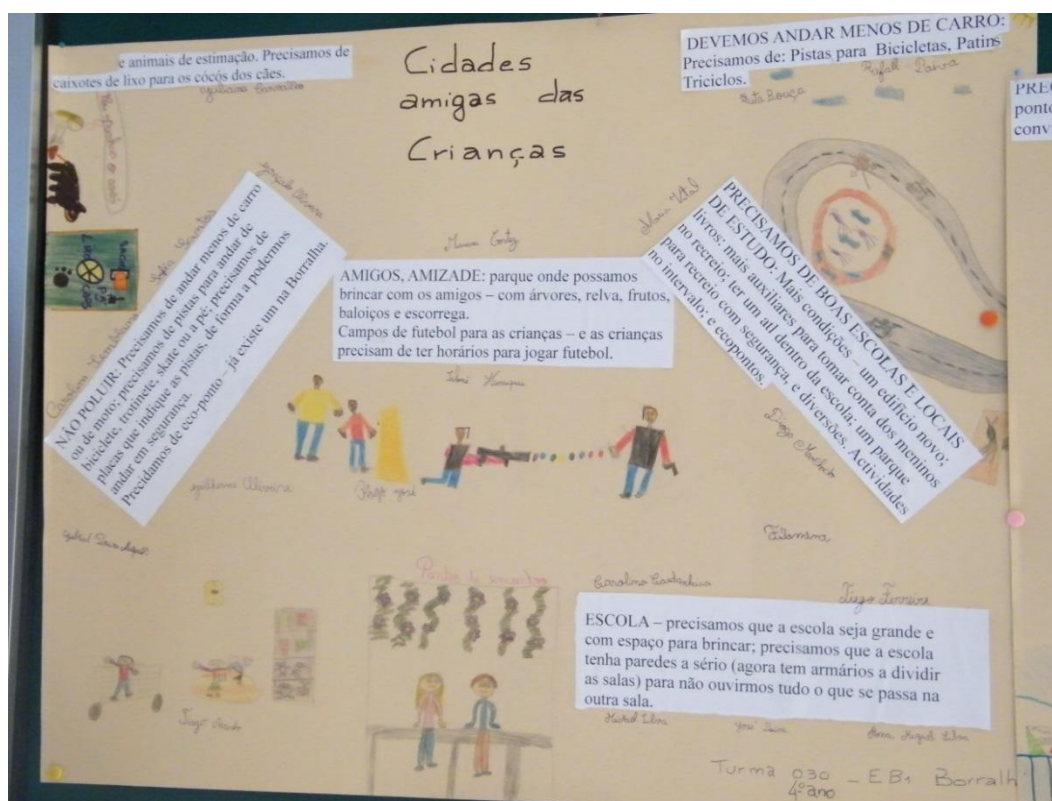 e animais de estimação. Precisamos de
caixotes de lixo para os cócós dos cães.
Cidades
amigas das
Crianças
DEVEMOS ANDAR MENOS DE CARRO:
Precisamos de: Pistas para Bicicletas, Patins
Triciclos.
Rafael Paiva
PREC
ponto
conv
NÃO POLUIR: Precisamos de andar menos de carro
ou de moto; precisamos de pistas para andar de
biciclete, trotinete, skate ou a pé; precisamos de
placas que indique as pistas, de forma a podermos
andar em segurança.
Precidamos de eco-ponto – já existe um na Borralha.
AMIGOS, AMIZADE: parque onde possamos
brincar com os amigos – com árvores, relva, frutos,
baloiços e escorrega.
Campos de futebol para as crianças – e as crianças
precisam de ter horários para jogar futebol.
PRECISAMOS DE BOAS ESCOLAS E LOCAIS
DE ESTUDO: Mais condições – um edifício novo;
livros; mais auxiliares para tomar conta dos meninos
no recreio; ter um atl dentro da escola; um parque
para recreio com segurança, e diversões. Actividades
no intervalo; e ecopontos.
Filomena
Ponto de encontro
Tiago Ferreira
ESCOLA – precisamos que a escola seja grande e
com espaço para brincar; precisamos que a escola
tenha paredes a sério (agora tem armários a dividir
as salas) para não ouvirmos tudo o que se passa na
outra sala.
Turma 030 – EB1 Borralh
4º ano